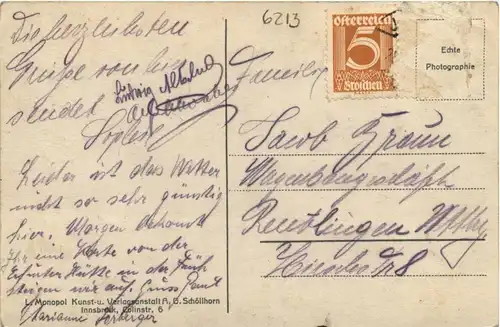 6213
österreich
5
Groschen
Echte
Photographie
Die herzlichsten
Grüße von hier
sendet
Familie
Jacob Braun
Reutlingen Wttbg
Leider ist das Wetter
nicht so sehr günstig
hier. Morgen bekommt
Ihr eine Karte von der
Hütte in der Früh
steigen wir auf. Gruss
Marianne
L. Monopol Kunst-u. Verlagsanstalt A. G. Schöllhorn
Innsbruck, Colinstr. 6